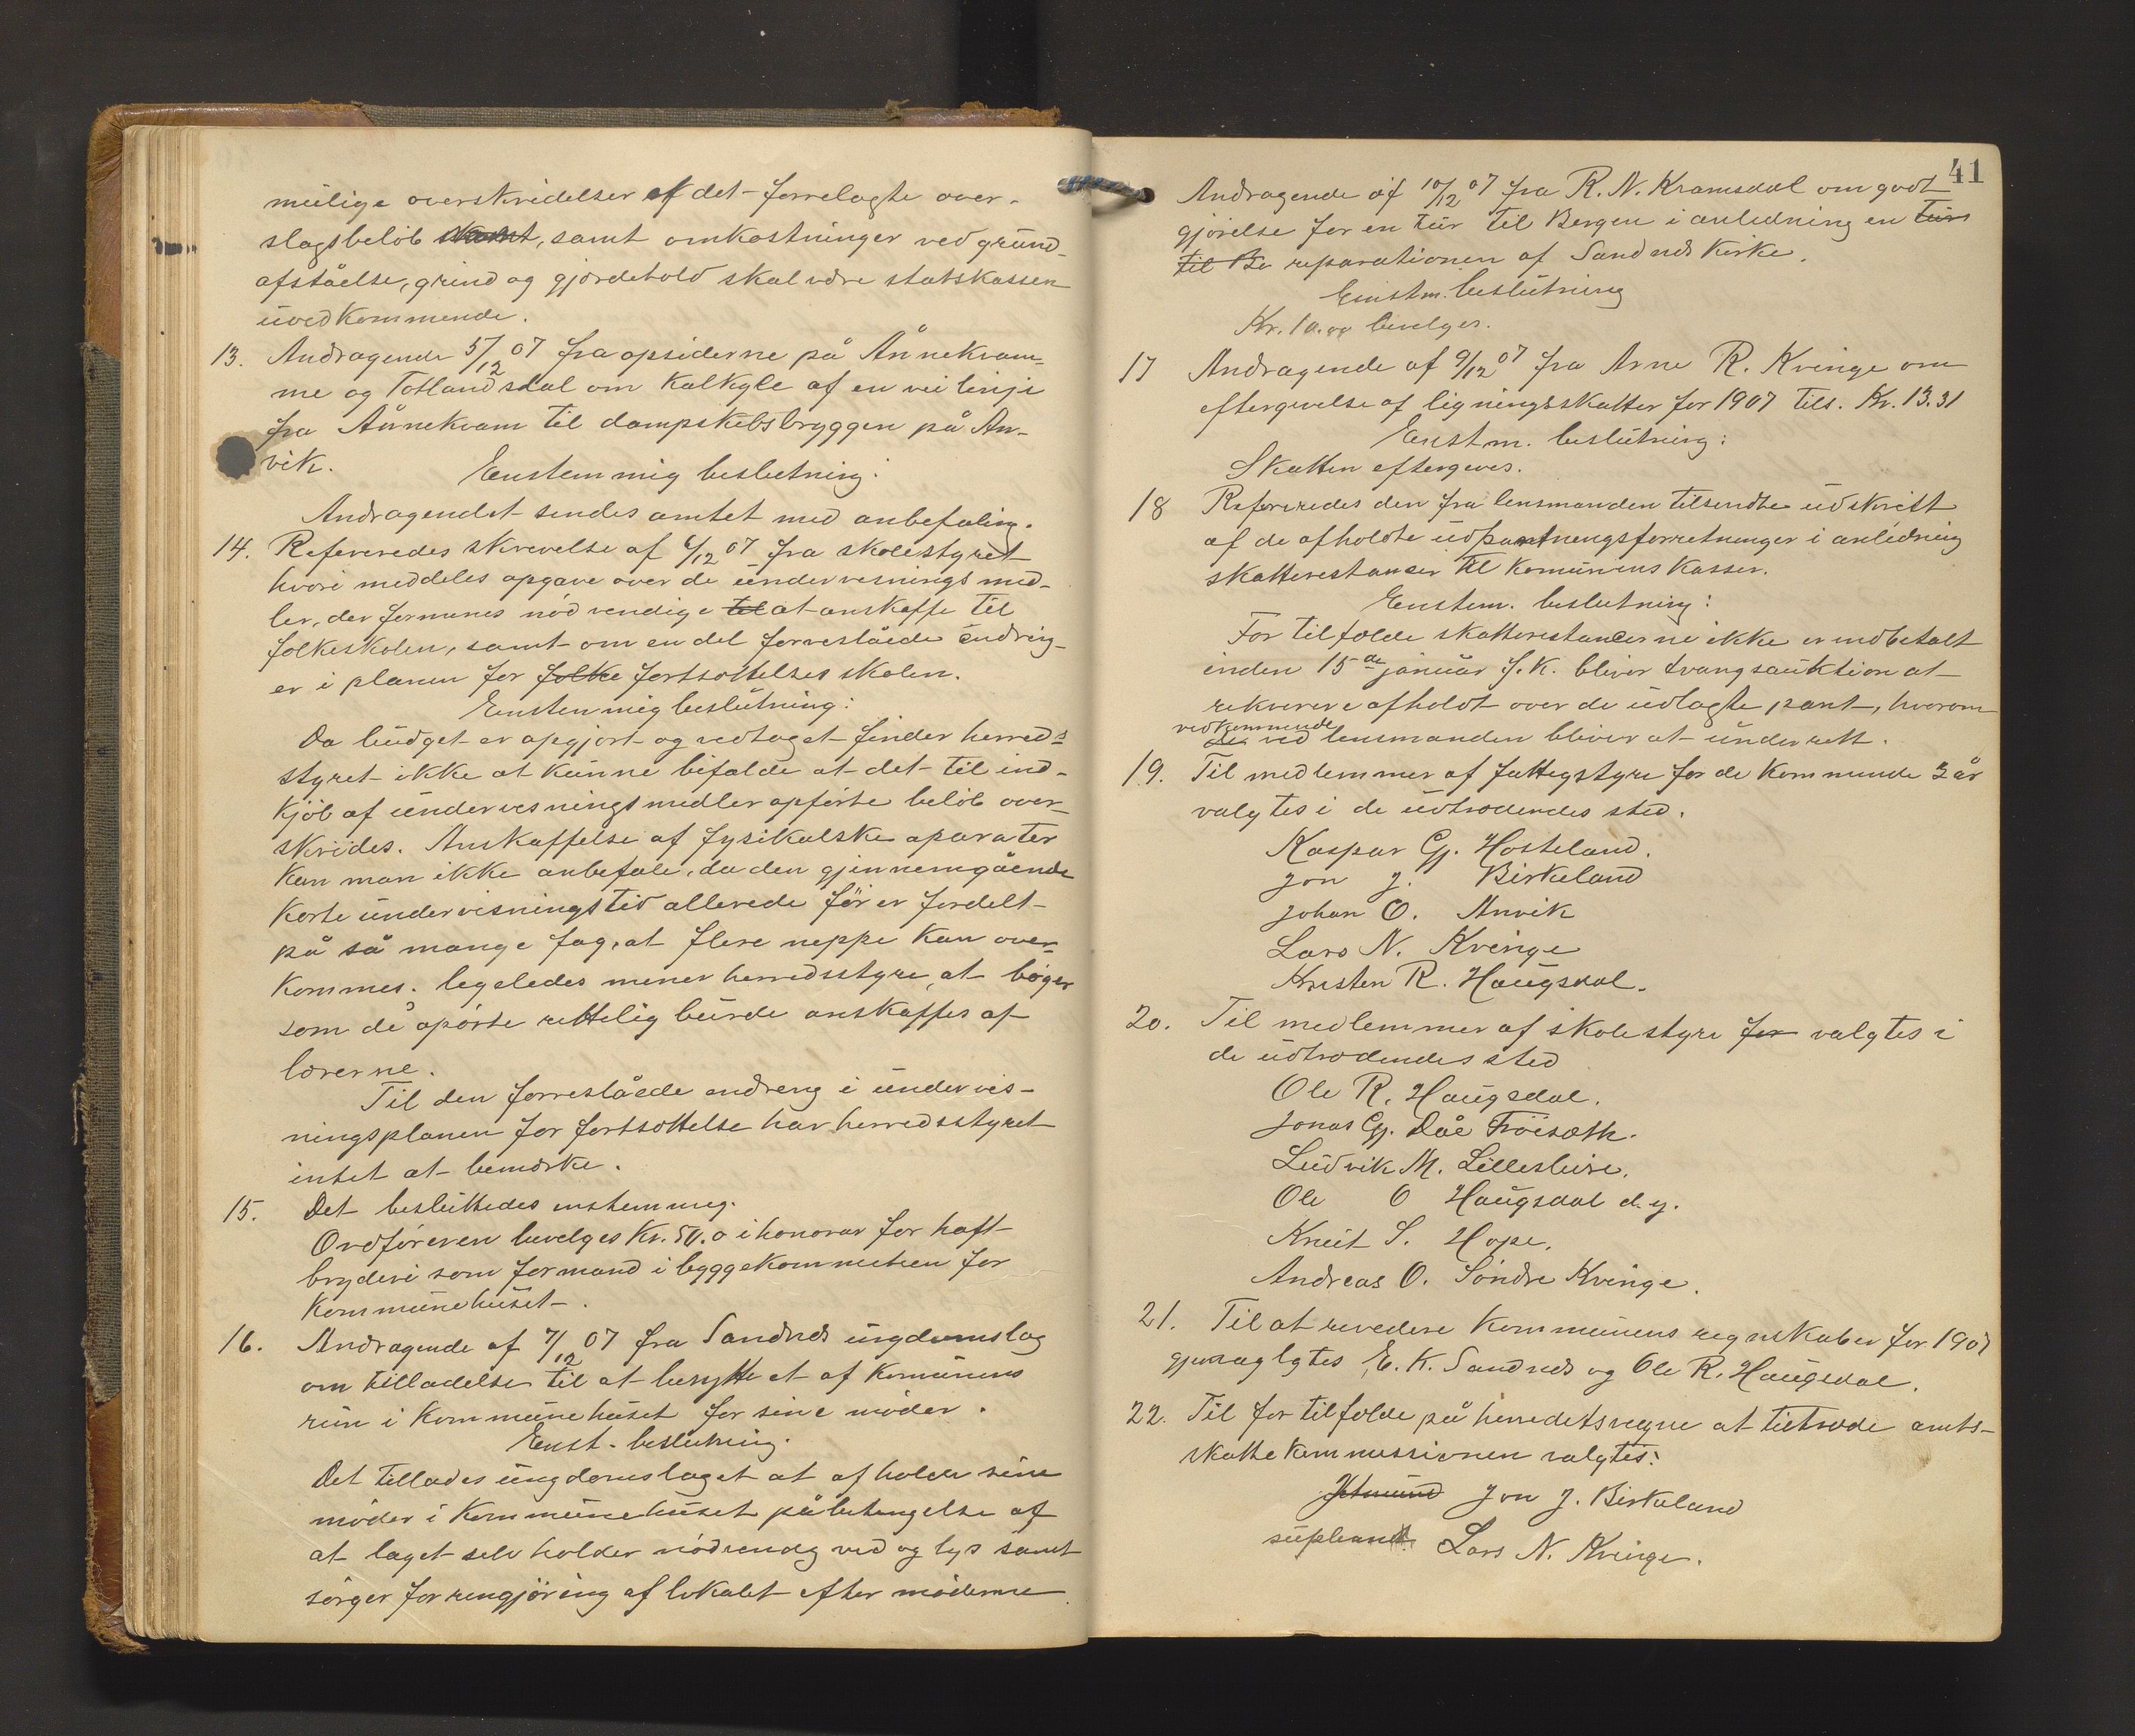 mulige overskridelser af det forrelagte over-
slagsbelöb, samt omkostninger ved grund-
afståelse, grind og gjordehold skal være statskassen
uvedkommende.
13. Andragende 5/12 07 fra opsiderne på Ånnekvam-
me og Totlandsdal om kalkyle af en vei linje
fra Ånnekvam til dampskebsbryggen på An-
vik.
Enstemmig beslutning:
Andragendet sendes amtet med anbefaling.
14. Refereredes skrevelse af 6/12 07 fra skolestyret
hvori meddeles opgave over de undervesnings med-
ler, der formenes nödvendige til at anskaffe til
folkeskolen, samt om en del forreslåede endring-
er i planen for folke fortsættelses skolen.
Enstemmig beslutning:
Da budget er opgjort og vedtaget finder herreds-
styret ikke at kunne bifalde at det til ind-
kjöb af undervesningsmedler opförte belöb over-
skrides. Anskaffelse af fysikalske aparater
kan man ikke anbefale, da den gjennemgående
korte undervisningstid allerede för er fordelt
på så mange fag, at flere neppe kan over-
kommes. legeledes mener herredsstyre, at böger
som de opörte rettelig burde anskaffes af
lærerne.
Til den forreslåede endreng i undervis-
ningsplanen for fortsættelse har herredsstyret
intet at bemærke.
15. Det besluttedes enstemmeg.
Ordföreren bevelges Kr. 50.0 i honorar for haft
bryderi som formand i byggekommetieen for
kommunehuset.
16. Andragende af 7/12 07 fra Sandnes ungdomslag
om tilladelse til at benytte et af komunens
rum i kommunehuset for sine möder.
Enst. beslutning.
Det tillades ungdomslaget at afholde sine
möder i kommunehuset på betengelse af
at laget selv holder nödvendig ved og lys samt
sörger for rengjöring af lokalet efter möderne.
41
Andragende af 10/12 07 fra R. N. Kramsdal om godt
gjörelse for en tur til Bergen i anledning en turs
til Be reparationen af Sandnes kirke.
Enstm. beslutning
Kr. 10.00 bevelges.
17 Andragende af 9/12 07 fra Arne R. Kvinge om
eftergivelse af ligningsskatter for 1907 tils. Kr. 13.31
Enstm. beslutning:
Skatten eftergeves.
18 Refereredes den fra lensmanden tilsendte udskrift
af de afholdte udpantnengsforretninger i anledning
skatterestancer til komunens kasser.
Enstem. beslutning:
For tilfælde skatterestancerne ikke er indbetalt
inden 15de januar f. k. bliver tvangsauktion at
rekvirere afholdt over de udlagte pant, hvorom
vedkommende
ved lensmanden bliver at underrett.
19. Til medlemmer af fattegstyre for de kommende 3 år
valgtes i de udtrædendes sted.
Kaspar Gj. Hosteland.
Jon J. Birkeland
Johan O. Anvik
Lars N. Kvinge
Kresten R. Haugsdal.
20. Til medlemmer af skolestyre for valgtes i
de udtrædendes sted
Ole R. Haugsdal.
Jonas Gj. Dåe Fröisæth.
Ludvik M. Lillesleire.
Ole O Haugsdal d. y.
Knut S. Hope.
Andreas O. Söndre Kvinge.
21. Til at revedere kommunens regnskaber for 1907
E. K. Sandnes og Ole R. Haugsdal.
22. Til for tilfælde på herredets vegne at tiltræde amts-
skattekommissionen valgtes:
Jetmund Jon J. Birkeland
supleant Lars N. Kvinge.